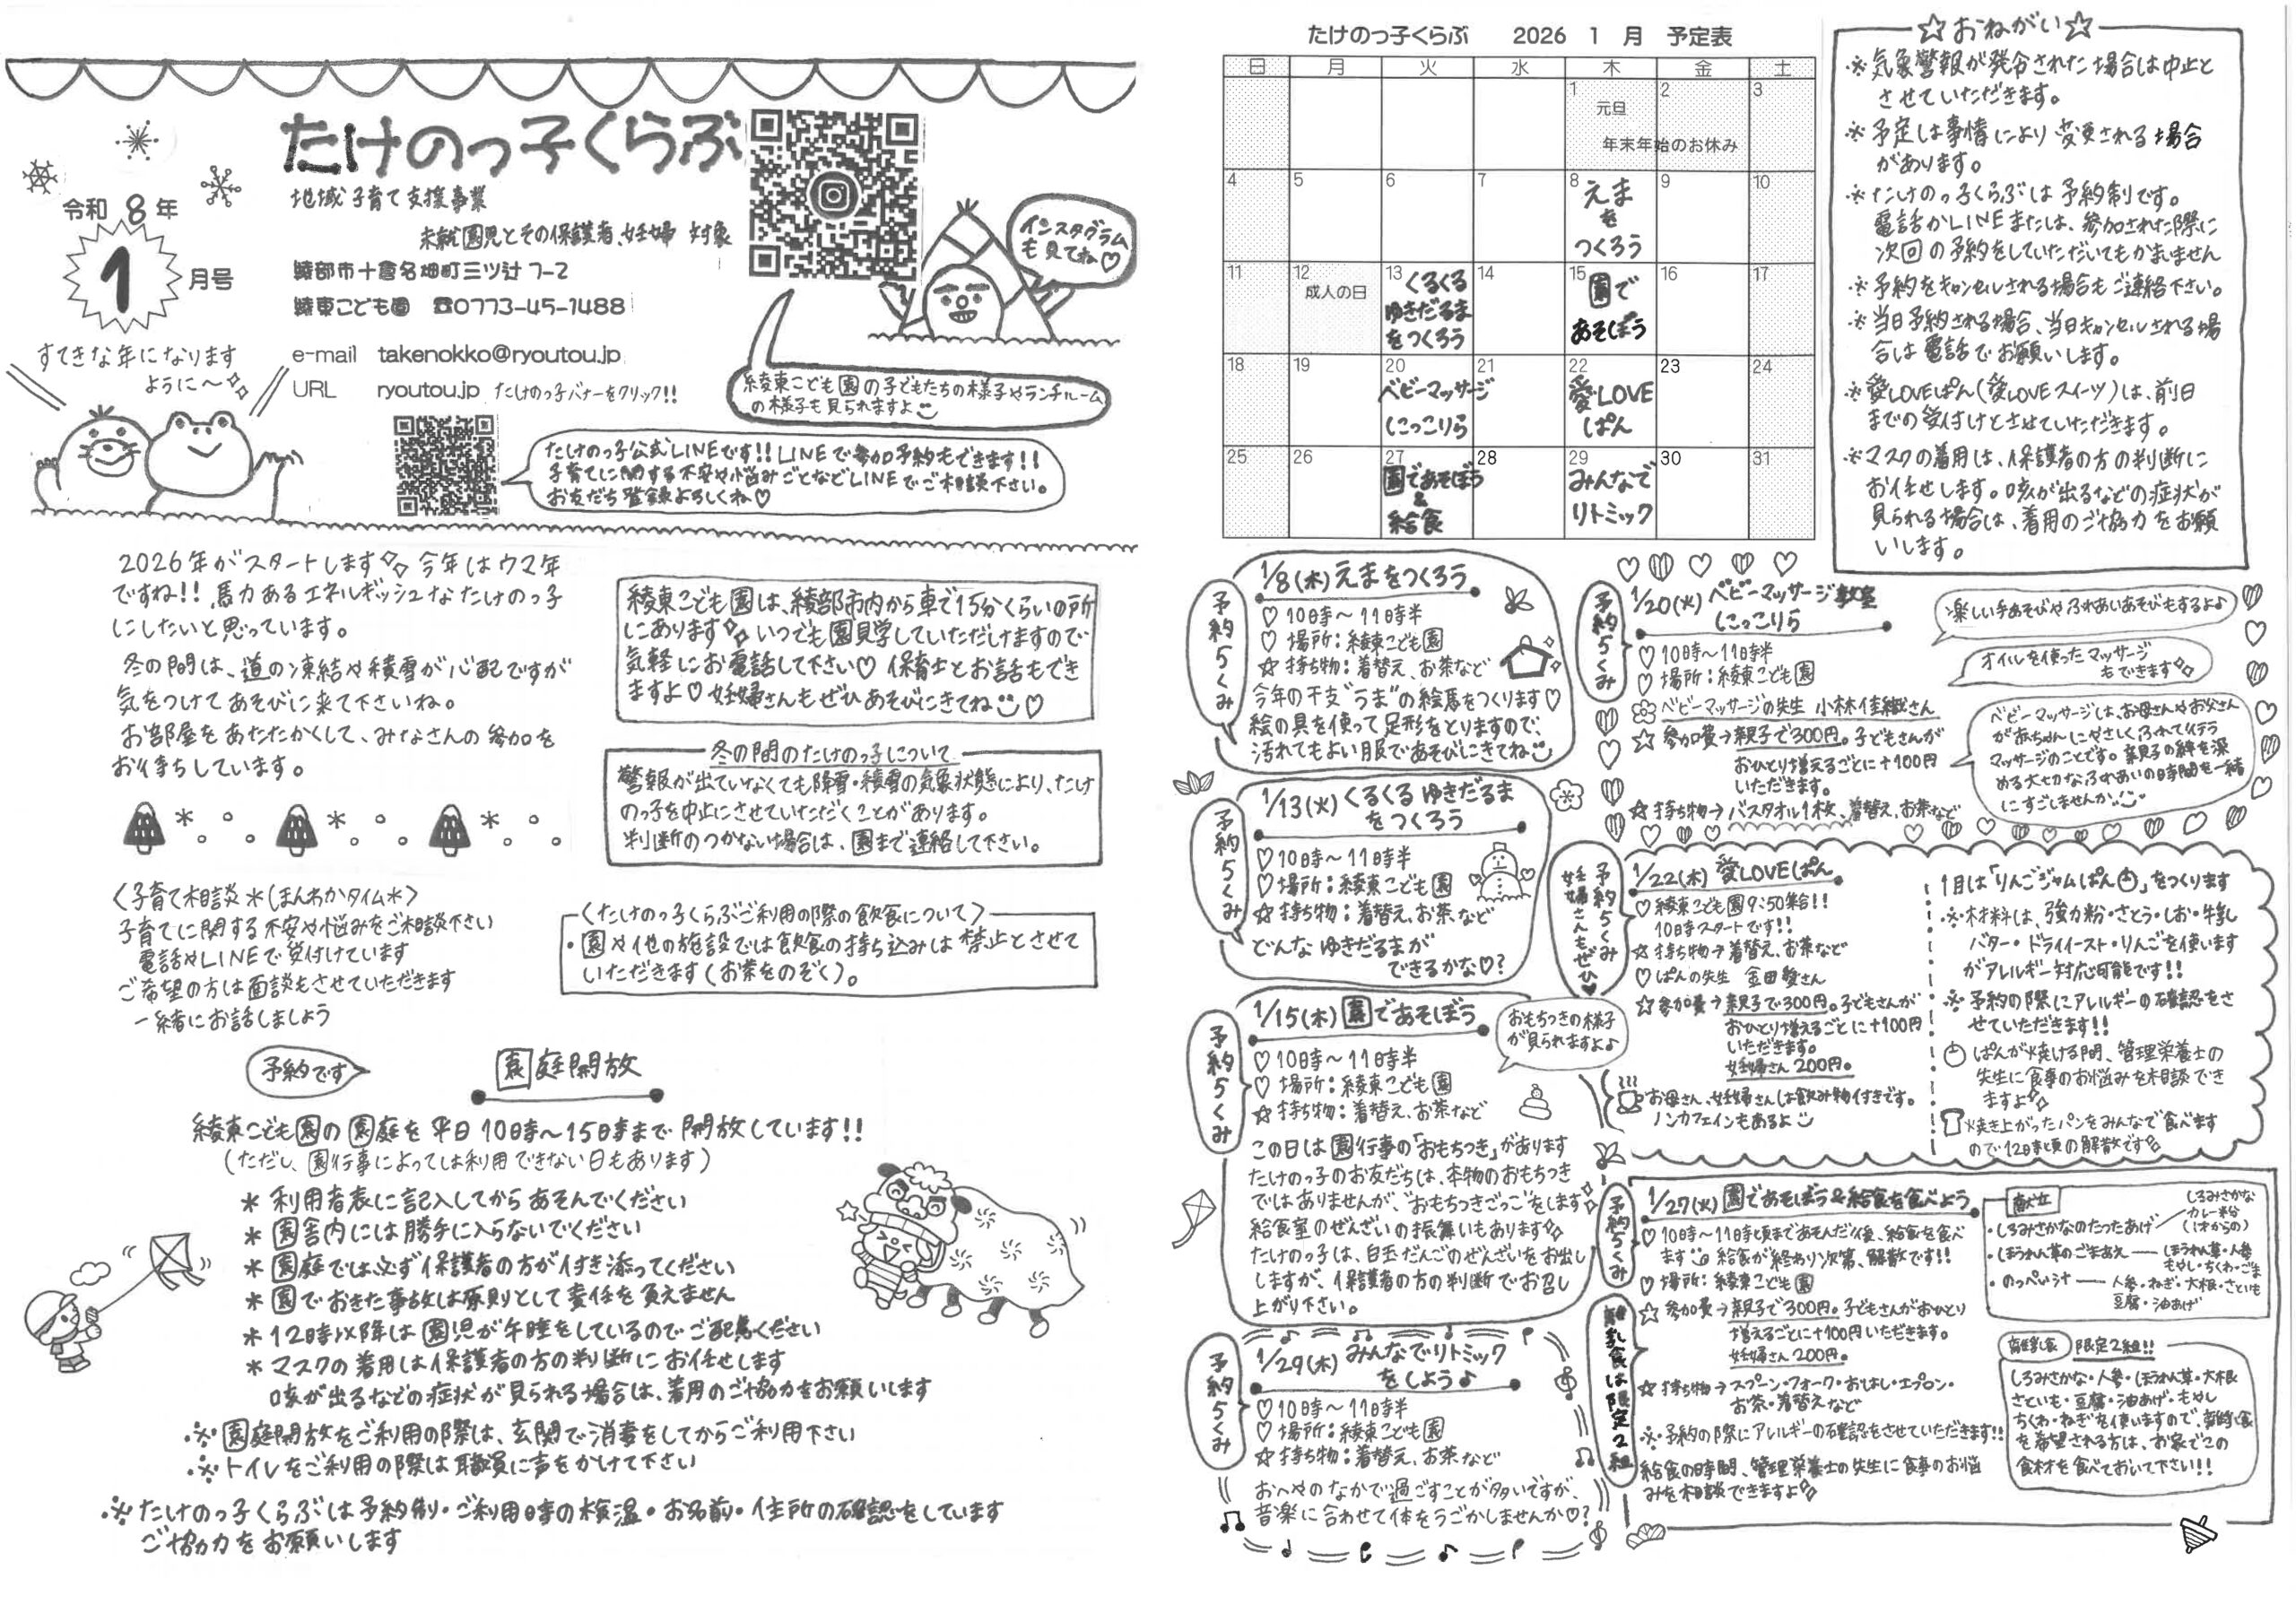 たけのっ子くらぶ
地域子育て支援事業
未就園児とその保護者、妊婦 対象
令和 8 年
1
月号
綾部市十倉名畑町三ツ辻 7-2
綾東こども園 ☎0773-45-1488
e-mail takenokko@ryoutou.jp
URL ryoutou.jp たけのっ子バナーをクリック!!
すてきな年になります
ように～
インスタグラム
も見てね♡
綾東こども園の子どもたちの様子やランチルーム
の様子も見られますよ
たけのっ子公式LINEです!! LINEで参加予約もできます!!
子育てに関する不安や悩みごとなどLINEでご相談下さい。
お友だち登録よろしくね♡
2026年がスタートします 今年はウマ年
ですね!! 馬力あるエネルギッシュなたけのっ子
にしたいと思っています。
冬の間は、道の凍結や積雪が心配ですが
気をつけてあそびに来て下さいね。
お部屋をあたたかくして、みなさんの参加を
お待ちしています。
綾東こども園は、綾部市内から車で15分くらいの所
にあります いつでも園見学していただけますので
気軽にお電話して下さい♡ 保育士とお話もでき
ますよ♡ 妊婦さんもぜひあそびにきてね♡
冬の間のたけのっ子について
警報が出ていなくても降雪・積雪の気象状態により、たけ
のっ子を中止にさせていただくことがあります。
判断のつかない場合は、園まで連絡して下さい。
〈子育て相談＊ほんわかタイム＊〉
子育てに関する不安や悩みをご相談下さい
電話やLINEで受付けています
ご希望の方は面談もさせていただきます
一緒にお話しましょう
〈たけのっ子くらぶご利用の際の飲食について〉
・園や他の施設では飲食の持ち込みは禁止とさせて
いただきます(お茶をのぞく)。
予約です
園庭開放
綾東こども園の園庭を平日10時～15時まで開放しています!!
(ただし、園行事によっては利用できない日もあります)
＊利用者表に記入してからあそんでください
＊園舎内には勝手に入らないでください
＊園庭では必ず保護者の方が付き添ってください
＊園でおきた事故は原則として責任を負えません
＊12時以降は園児が午睡をしているのでご配慮ください
＊マスクの着用は保護者の方の判断にお任せします
咳が出るなどの症状が見られる場合は、着用のご協力をお願いします
※園庭開放をご利用の際は、玄関で消毒をしてからご利用下さい
※トイレをご利用の際は職員に声をかけて下さい
※たけのっ子くらぶは予約制・ご利用時の検温・お名前・住所の確認をしています
ご協力をお願いします
たけのっ子くらぶ 2026 1 月 予定表
日 月 火 水 木 金 土
1 2 3
元旦
年末年始のお休み
4 5 6 7 8 9 10
えま
を
つくろう
11 12 13 14 15 16 17
成人の日
くるくる
ゆきだるま
をつくろう
園で
あそぼう
18 19 20 21 22 23 24
ベビーマッサージ
にっこりら
愛LOVE
ぱん
25 26 27 28 29 30 31
園であそぼう
&
給食
みんなで
リトミック
☆おねがい☆
※気象警報が発令された場合は中止と
させていただきます。
※予定は事情により変更される場合
があります。
※たけのっ子くらぶは予約制です。
電話かLINEまたは、参加された際に
次回の予約をしていただいてもかまいません
※予約をキャンセルされる場合もご連絡下さい。
※当日予約される場合、当日キャンセルされる場
合は電話でお願いします。
※愛LOVEぱん(愛LOVEスイーツ)は、前日
までの受付けとさせていただきます。
※マスクの着用は、保護者の方の判断に
お任せします。咳が出るなどの症状が
見られる場合は、着用のご協力をお願
いします。
予約5くみ
1/8(木)えまをつくろう
♡10時～11時半
♡場所：綾東こども園
☆持ち物：着替え、お茶など
今年の干支“うま”の絵馬をつくります♡
絵の具を使って足形をとりますので、
汚れてもよい服であそびにきてね
予約5くみ
1/13(火)くるくるゆきだるま
をつくろう
♡10時～11時半
♡場所：綾東こども園
☆持ち物：着替え、お茶など
どんなゆきだるまが
できるかな♡?
予約5くみ
1/15(木)園であそぼう
おもちつきの様子
が見られますよ♪
♡10時～11時半
♡場所：綾東こども園
☆持ち物：着替え、お茶など
この日は園行事の「おもちつき」があります
たけのっ子のお友だちは、本物のおもちつき
ではありませんが、“おもちつきごっこ”をします
給食室のぜんざいの振舞いもあります
たけのっ子は、白玉だんごのぜんざいをお出し
しますが、保護者の方の判断でお召し
上がり下さい。
予約5くみ
1/29(木)みんなでリトミック
をしよう♪
♡10時～11時半
♡場所：綾東こども園
☆持ち物：着替え、お茶など
おへやのなかで過ごすことが多いですが、
音楽に合わせて体をうごかしませんか♡?
予約5くみ
1/20(火)ベビーマッサージ教室
にっこりら
♡10時～11時半
♡場所：綾東こども園
ベビーマッサージの先生 小林佳織さん
☆参加費→親子で300円。子どもさんが
おひとり増えるごとに+100円
いただきます。
☆持ち物→バスタオル1枚、着替え、お茶など
楽しい手あそびやふれあいあそびもするよ♪
オイルを使ったマッサージ
もできます
ベビーマッサージは、お母さんやお父さん
が赤ちゃんにやさしくふれて行う
マッサージのことです。親子の絆を深
める大切なふれあいの時間を一緒
にすごしませんか。
予約5くみ
妊婦さんもぜひ♥
1/22(木)愛LOVEぱん
♡綾東こども園9:50集合!!
10時スタートです!!
☆持ち物→着替え、お茶など
♡ぱんの先生 金田愛さん
☆参加費→親子で300円。子どもさんが
おひとり増えるごとに+100円
いただきます。
妊婦さん200円。
お母さん、妊婦さんは飲み物付きです。
ノンカフェインもあるよ
1月は「りんごジャムぱん」をつくります
※材料は、強力粉・さとう・しお・牛乳
バター・ドライイースト・りんごを使います
がアレルギー対応可能です!!
※予約の際にアレルギーの確認をさ
せていただきます!!
ぱんが焼ける間、管理栄養士の
先生に食事のお悩みを相談でき
ますよ
焼き上がったパンをみんなで食べます
ので12時頃の解散です
予約5くみ
離乳食は限定2組
1/27(火)園であそぼう&給食を食べよう
♡10時～11時頃まであそんだ後、給食を食べ
ます 給食が終わり次第、解散です!!
♡場所：綾東こども園
☆参加費→親子で300円。子どもさんがおひとり
増えるごとに+100円いただきます。
妊婦さん200円。
☆持ち物→スプーン・フォーク・おはし・エプロン・
お茶・着替えなど
※予約の際にアレルギーの確認をさせていただきます!!
給食の時間、管理栄養士の先生に食事のお悩
みを相談できますよ
献立
・しろみさかなのたつたあげ
しろみさかな
カレー粉
・ほうれん草のごまあえ ― ほうれん草・人参
もやし・ちくわ・ごま
・のっぺい汁 ― 人参・ねぎ・大根・さといも
豆腐・油あげ
離乳食 限定2組!!
しろみさかな・人参・ほうれん草・大根
さといも・豆腐・油あげ・もやし
ちくわ・ねぎを使いますので、離乳食
を希望される方は、お家でこの
食材を食べておいて下さい!!